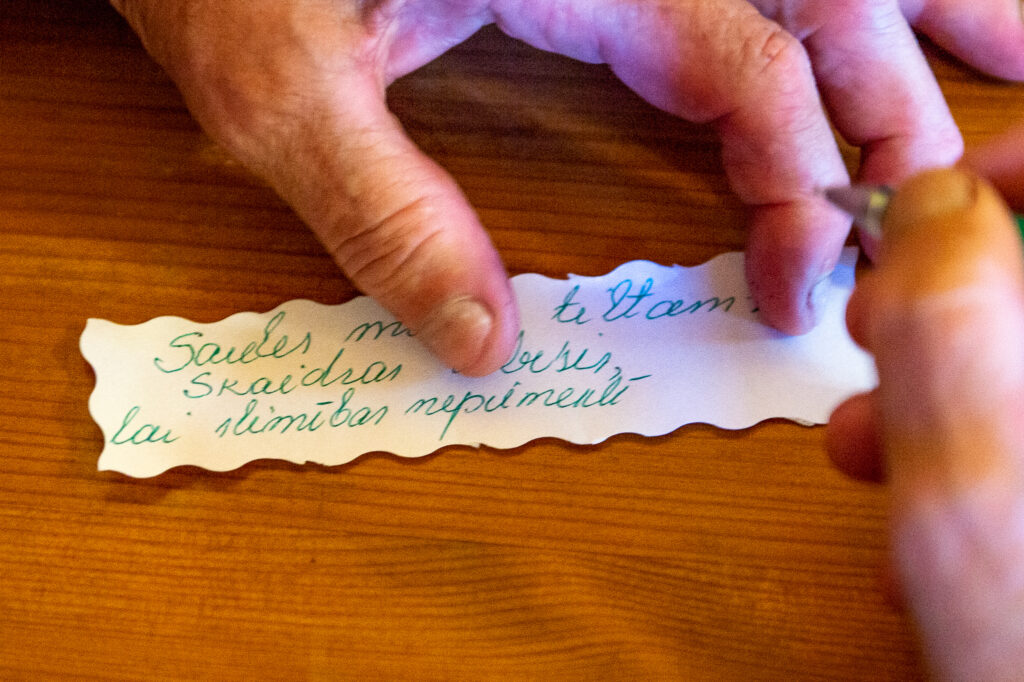 Saules tiltam
Skaidras
lai slimības nepiemeklē